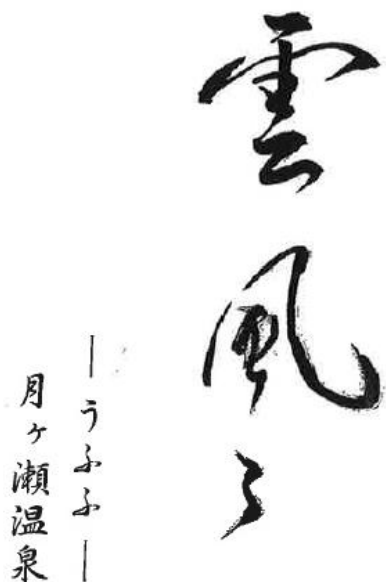 雲風々
—うふふ—
月ヶ瀬温泉